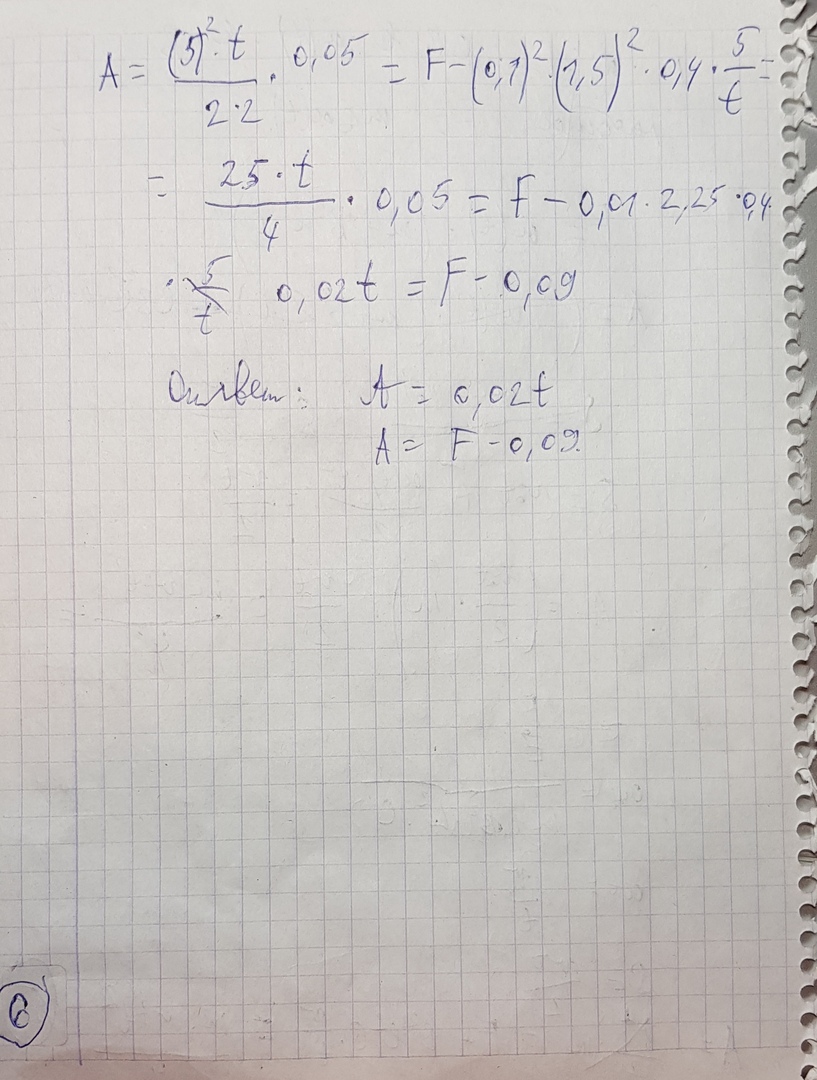 A = (5)² · t / 2·2 · 0,05 = F - (0,1)² · (1,5)² · 0,4 · 5/t =
= 25 · t / 4 · 0,05 = F - 0,01 · 2,25 · 0,4
· 5/t 0,02t = F - 0,09
Ответ: A = 0,02t
A = F - 0,09.
6